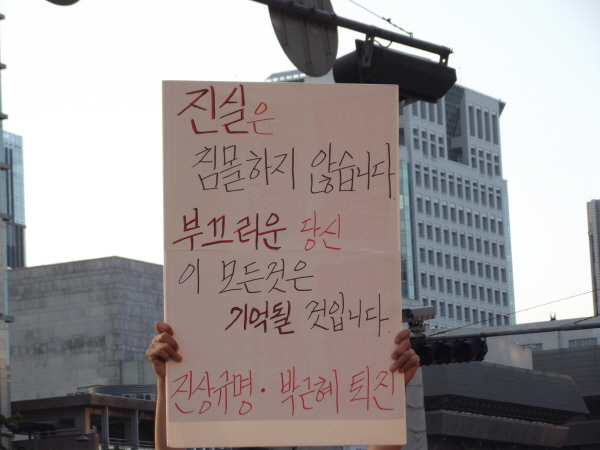 진실은
침몰하지 않습니다
부끄러운 당신
이 모든것은
기억될 것입니다.
진상규명 · 박근혜 퇴진